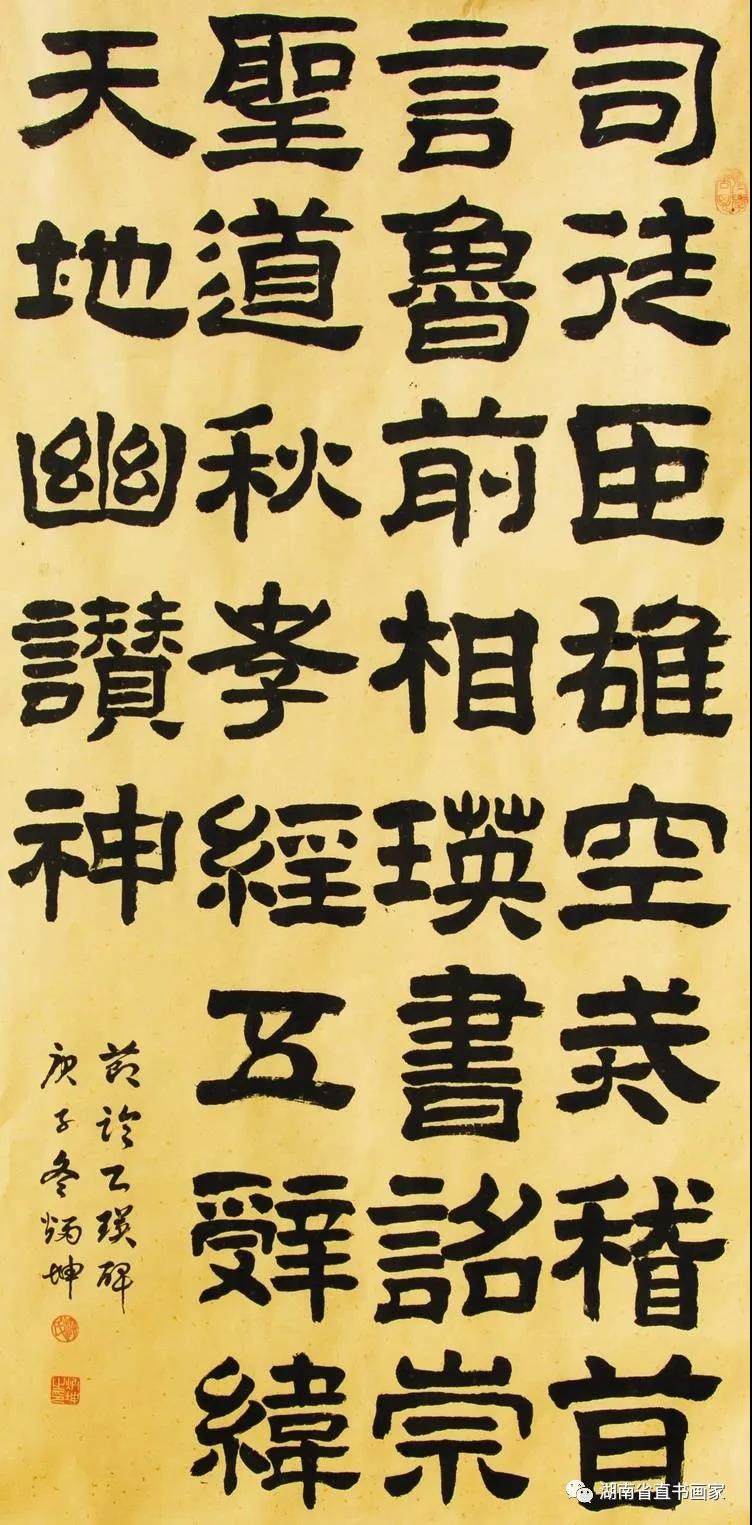 司徒臣雄空戒稽首
言魯前相瑛書詔崇
聖道秋孝經五辤緯
天地幽讃神
節臨乙瑛碑
庚子冬炳坤
湖南省直书画家